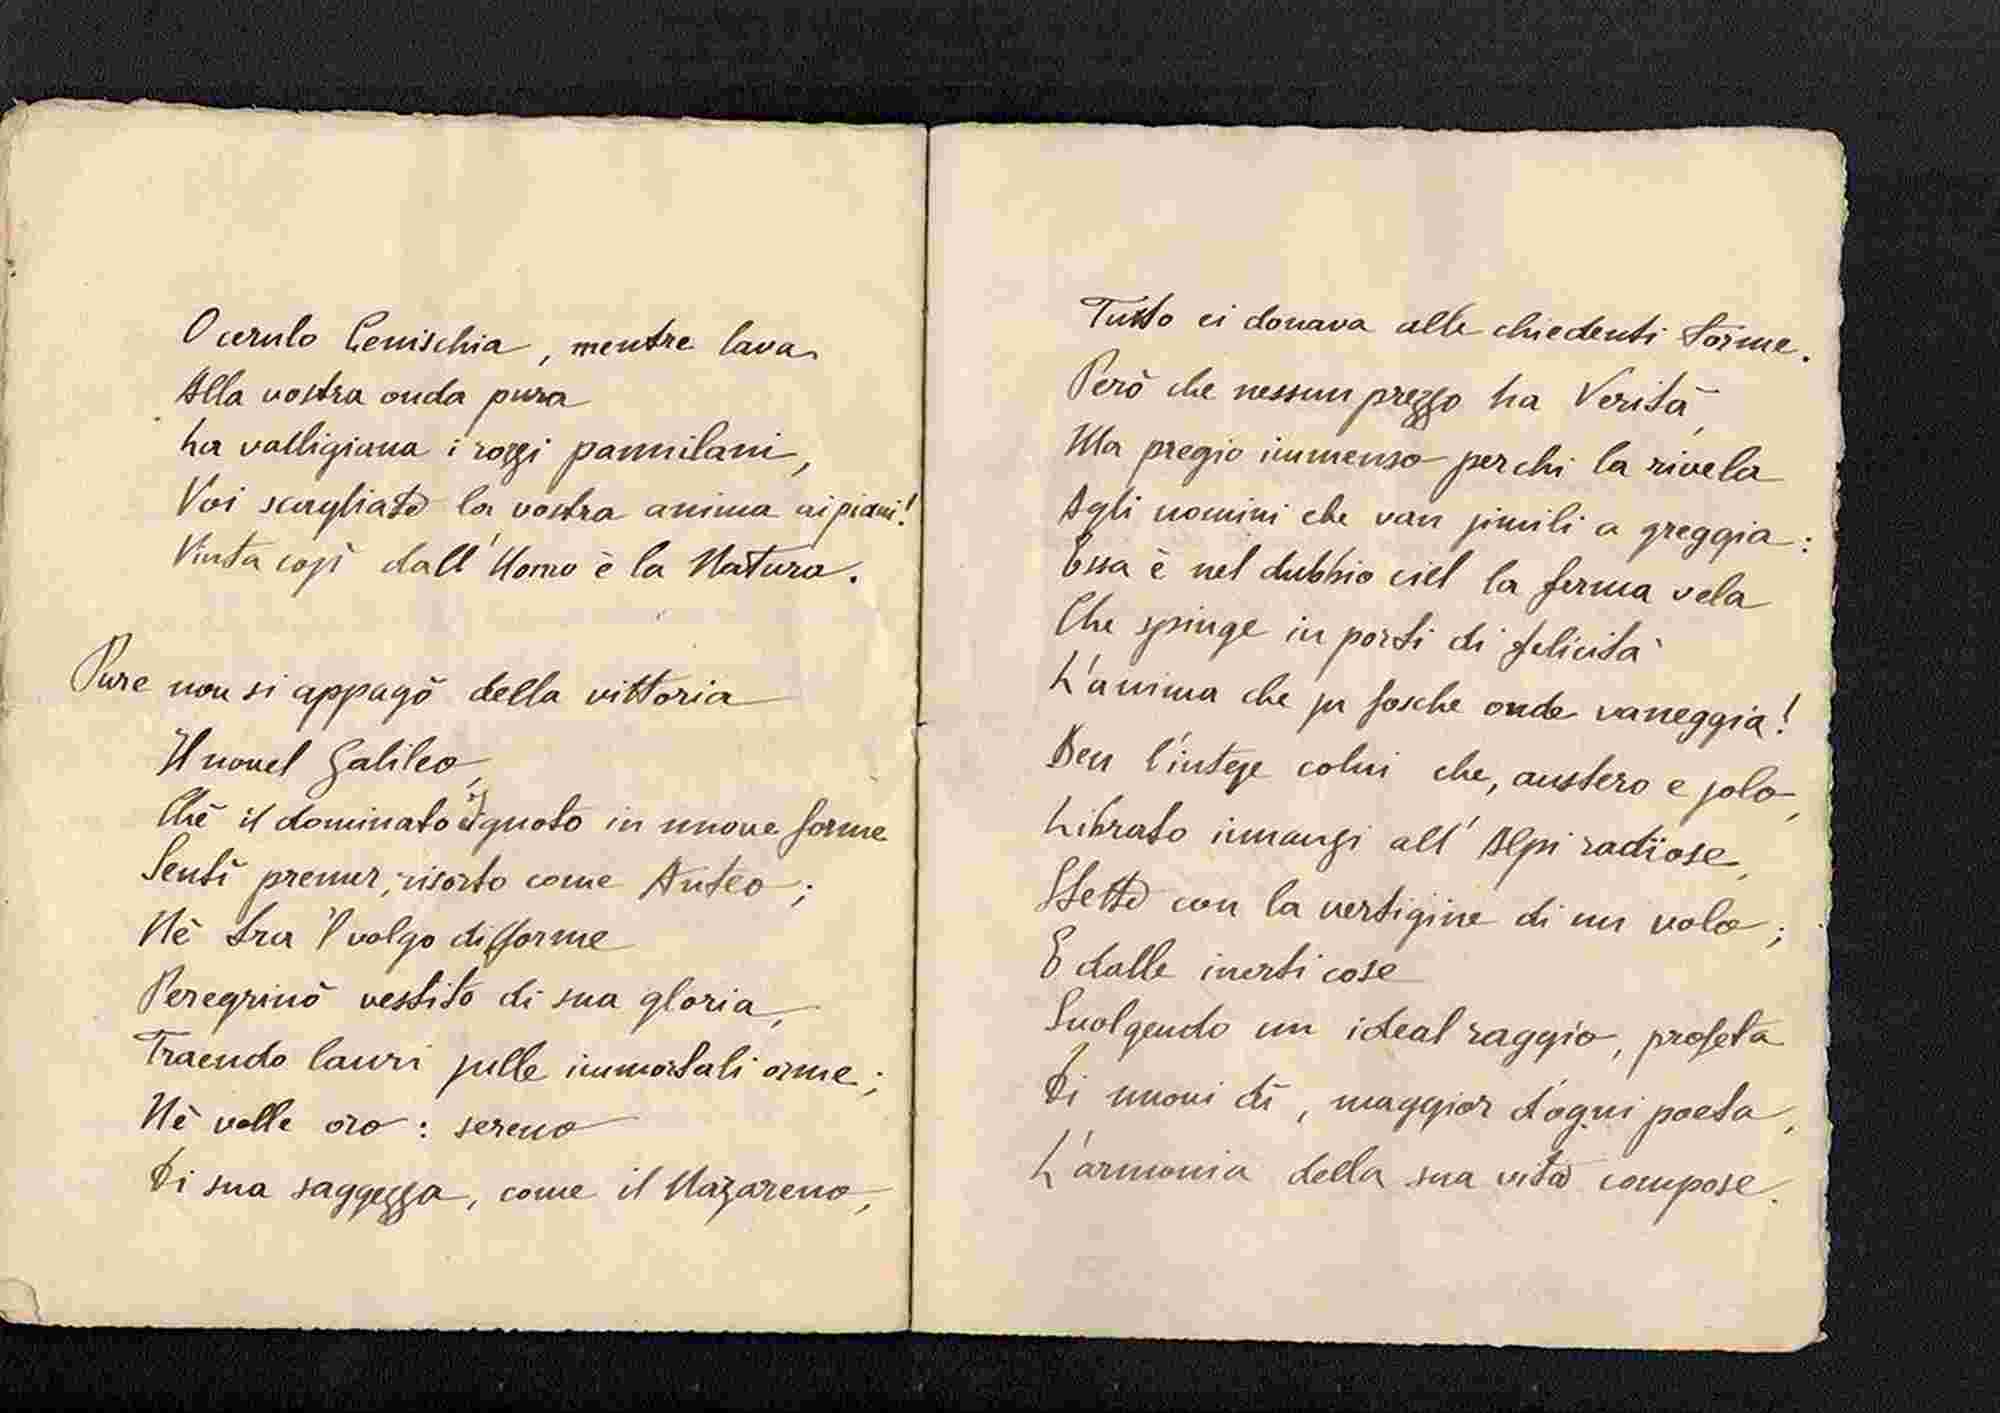 O cerulo Cenischia, mentre lava
Alla vostra onda pura
La valligiana i rozzi pannilani,
Voi scagliate la vostra anima ai piani!
Vinta così dall' Uomo è la Natura.
Pure non si appagò della vittoria
Il novel Galileo,
Chè il dominato ignoto in nuove forme
Sentì premer, risorto come Anteo;
Nè tra 'l volgo difforme
Peregrinò vestito di sua gloria,
Traendo lauri sulle immortali orme;
Nè volle oro: sereno
Di sua saggezza, come il Nazareno,
Tutto ei donava alle chiedenti torme.
Però che nessun prezzo ha Verità,
Ma pregio immenso per chi la rivela
Agli uomini che van simili a greggia:
Essa è nel dubbio ciel la ferma vela
Che spinge in porti di felicità
L'anima che su fosche onde vaneggia!
Ben l'intese colui che, austero e solo,
Librato innanzi all' Alpi radïose,
Stette con la vertigine di un volo;
E dalle inerti cose
Svolgendo un ideal raggio, profeta
Di nuovi dì, maggior d'ogni poeta,
L'armonia della sua vita compose.